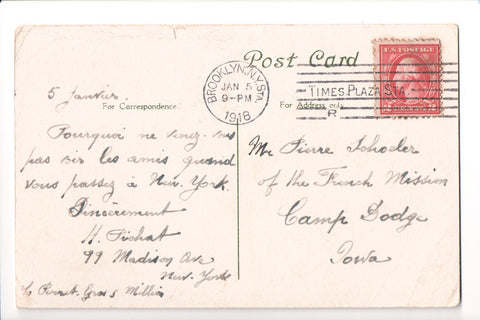 Post Card
U.S. POSTAGE
BROOKLYN, N.Y. STA.
JAN 5
9-PM
1918
TIMES PLAZA STA.
R
5 Janvier.
For Correspondence
For Address only
Pourquoi ne venez-vous
pas voir les amis quand
vous passez à New. York.
Sincèrement
H. Pichat
99 Madison Ave
New. York
c/o Perret. Gros &
Mr Pierre Schoeler
of the French Mission
Camp Dodge
Iowa